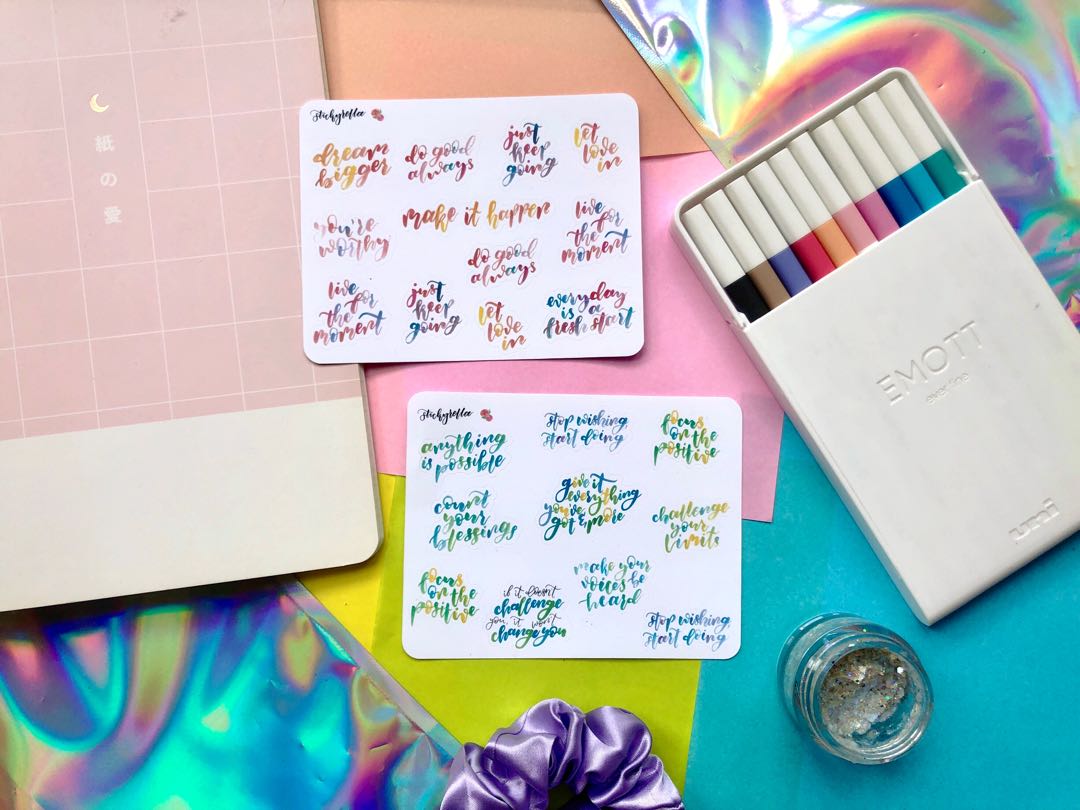 紙
の
愛
Stickyreflee
dream
bigger
do good
always
just
keep
going
let
love
in
you're
worthy
make it happen
live
for
the
moment
do good
always
live
for
the
moment
just
keep
going
let
love
in
everyday
is a
fresh start
Stickyreflee
anything
is possible
stop wishing,
start doing
focus
on the
positive
count
your
blessings
give it
everything
you've
got & more
challenge
your
limits
focus
on the
positive
if it doesn't
challenge
you, it won't
change you
make your
voices be
heard
stop wishing,
start doing
EMOTT
ever fine
uni